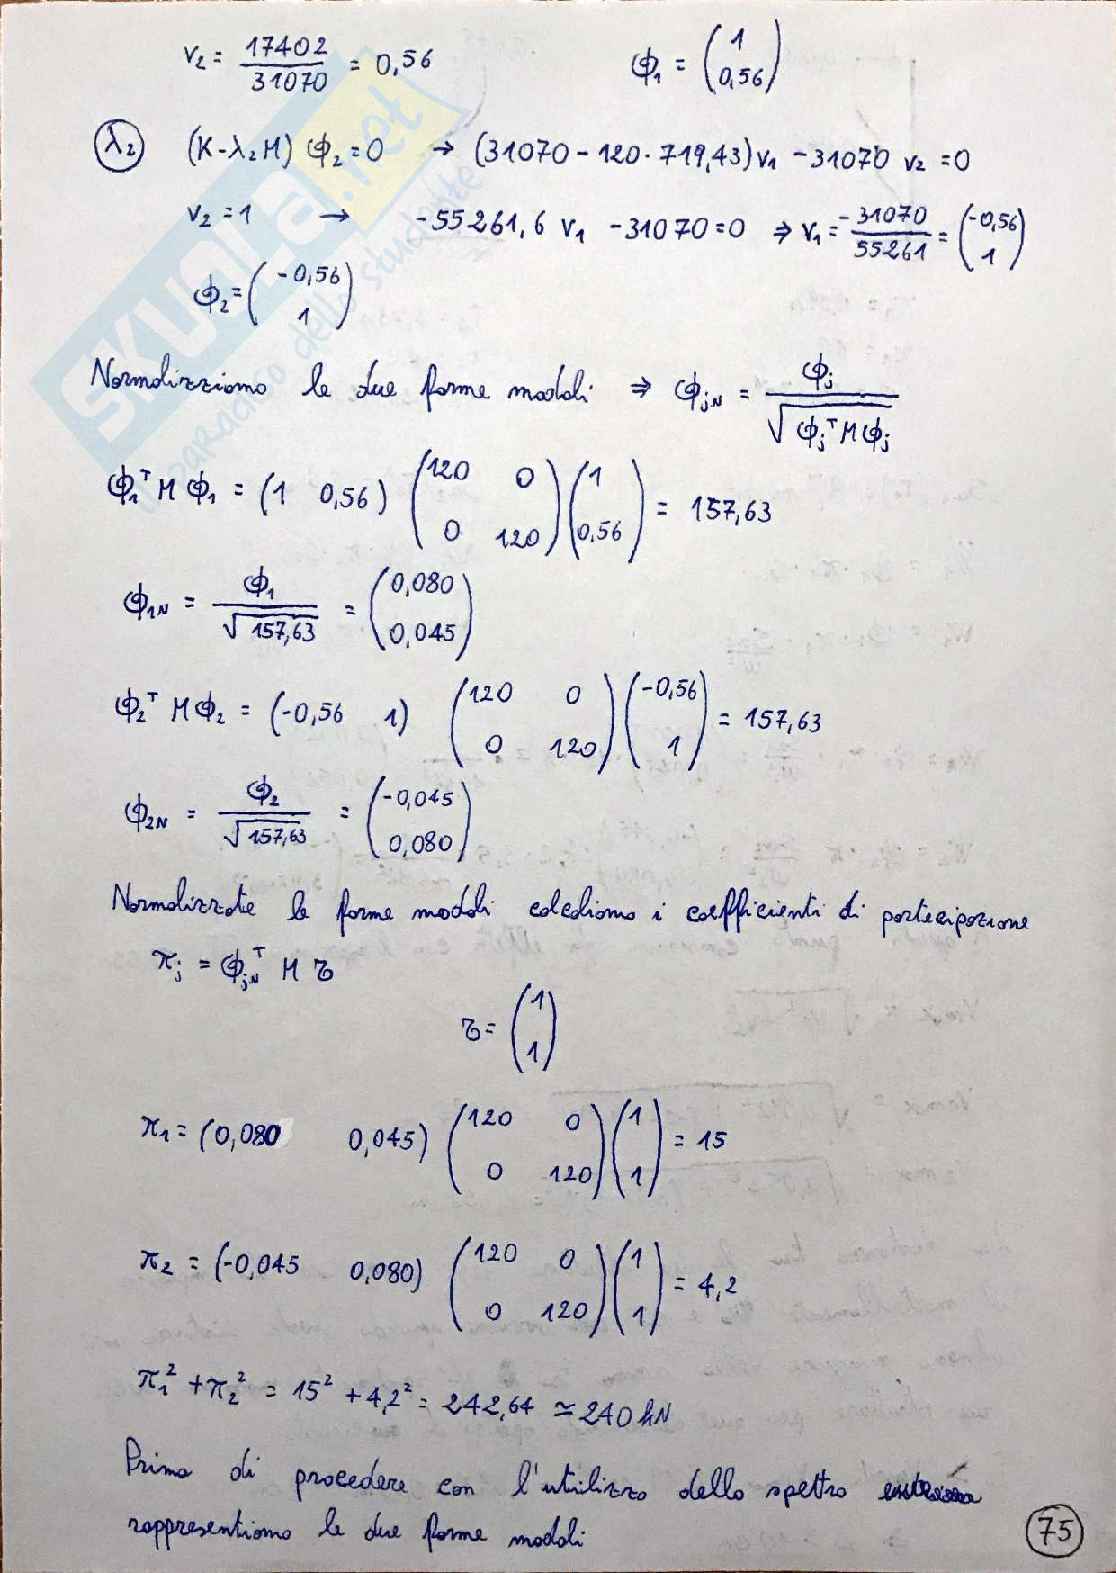 v₂ = 17402/31070 = 0,56    ϕ₁ = (1 0,56)
λ₂ (K-λ₂M) ϕ₂ = 0 → (31070 - 120 · 719,43) v₁ - 31070 v₂ = 0
v₂ = 1 → -55261,6 v₁ - 31070 = 0 ⇒ v₁ = -31070/55261 = (-0,56 1)
ϕ₂ = (-0,56 1)
Normalizziamo le due forme modali ⇒ ϕjN = ϕj/√ϕjᵀMϕj
ϕ₁ᵀ M ϕ₁ = (1 0,56) (120 0 0 120) (1 0,56) = 157,63
ϕ₁N = ϕ₁/√157,63 = (0,080 0,045)
ϕ₂ᵀ M ϕ₂ = (-0,56 1) (120 0 0 120) (-0,56 1) = 157,63
ϕ₂N = ϕ₂/√157,63 = (-0,045 0,080)
Normalizzate le forme modali calcoliamo i coefficienti di partecipazione
πj = ϕjNᵀ M τ
τ = (1 1)
π₁ = (0,080 0,045) (120 0 0 120) (1 1) = 15
π₂ = (-0,045 0,080) (120 0 0 120) (1 1) = 4,2
π₁² + π₂² = 15² + 4,2² = 242,64 ≃ 240 kN
Prima di procedere con l'utilizzo dello spettro
rappresentiamo le due forme modali
75
SKUOLA.net
il paradiso dello studente